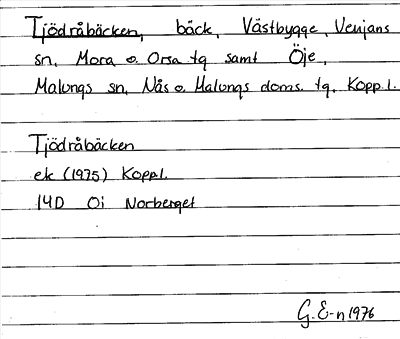 Tjödråbäcken, bäck, Västbygge, Venjans
sn, Mora o. Orsa tg samt Öje,
Malungs sn, Nås o Malungs doms. tg, Kopp.l.
Tjödråbäcken
ek (1975) Kopp.l.
14D 0i Norberget
G. E-n 1976